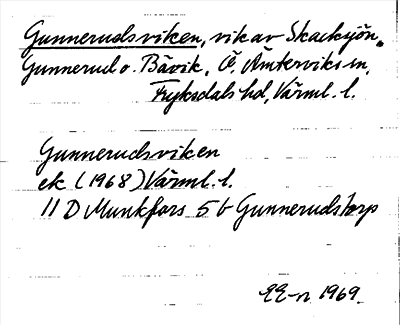 Gunnerudsviken, vik av Skacksjön,
Gunnerud o. Bävik, Ö. Ämterviks sn,
Fryksdals hd, Värml. l.
Gunnerudsviken
ek (1968) Värml. l.
11 D Munkfors 5 b Gunnerudstorp
EE-n 1969.